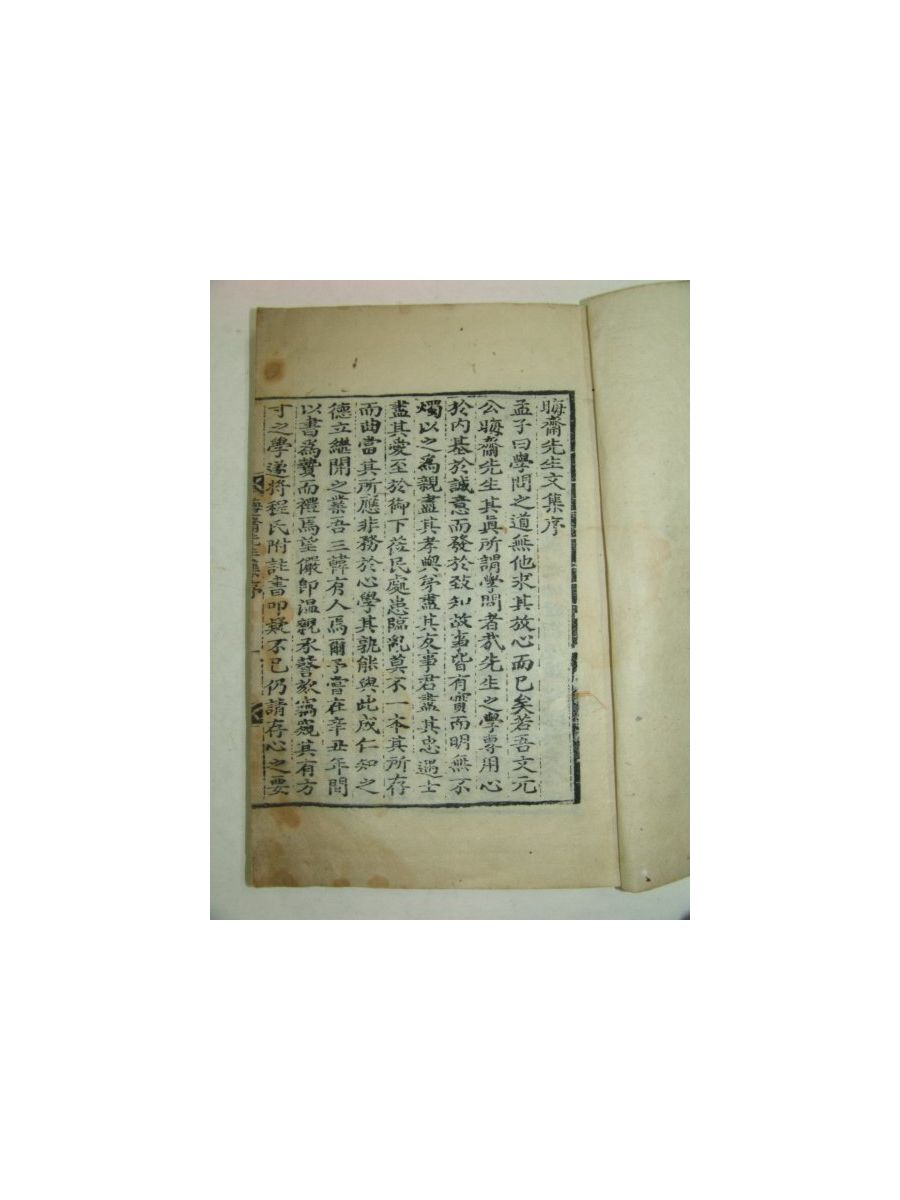 晦齋先生文集序
孟子曰學問之道無他求其放心而已矣若吾文元
公晦齋先生其眞所謂學問者哉先生之學專用心
於内基於誠意而發於致知故事皆有實而明無不
燭以之爲親盡其孝與弟盡其友事君盡其忠遇士
盡其愛至於御下莅民處患臨亂莫不一本其所存
而曲當其所應非務於心學其孰能與此成仁知之
德立繼開之業吾三韓有人焉爾予嘗在辛丑年間
以書爲贄而禮焉望儼卽溫親承謦欬竊窺其有方
寸之學遂將程氏附註書叩疑不已仍請存心之要
晦齋先生集序 一